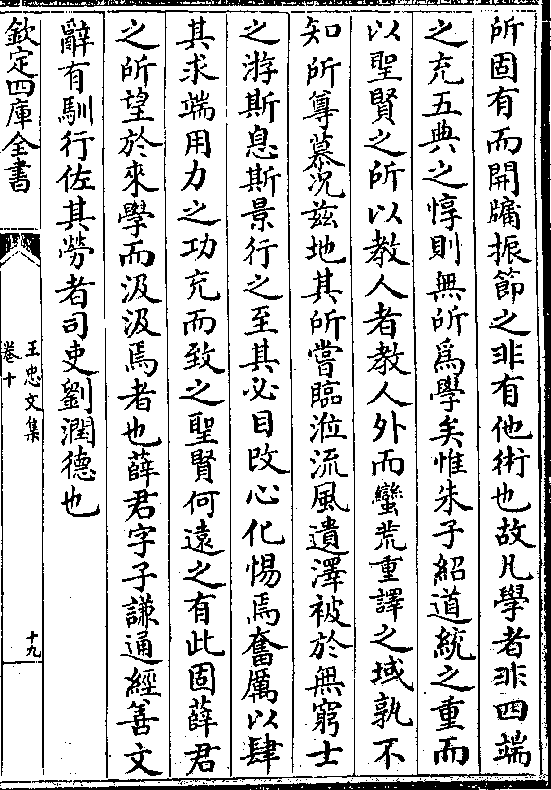 所固有而開牖振節之非有他術也故凡學者非四端
之充五典之惇則無所爲學矣惟朱子紹道統之重而
以聖賢之所以教人者教人外而蠻荒重譯之域孰不
知所尊慕況兹地其所嘗臨涖流風遺澤被於無窮士
之游斯息斯景行之至其必目改心化惕焉奮厲以肆
其求端用力之功充而致之聖賢何遠之有此固薛君
之所望於來學而汲汲焉者也薛君字子謙通經善文
辭有馴行佐其勞者司吏劉潤德也
欽定四庫全書
王忠文集
卷十
十九